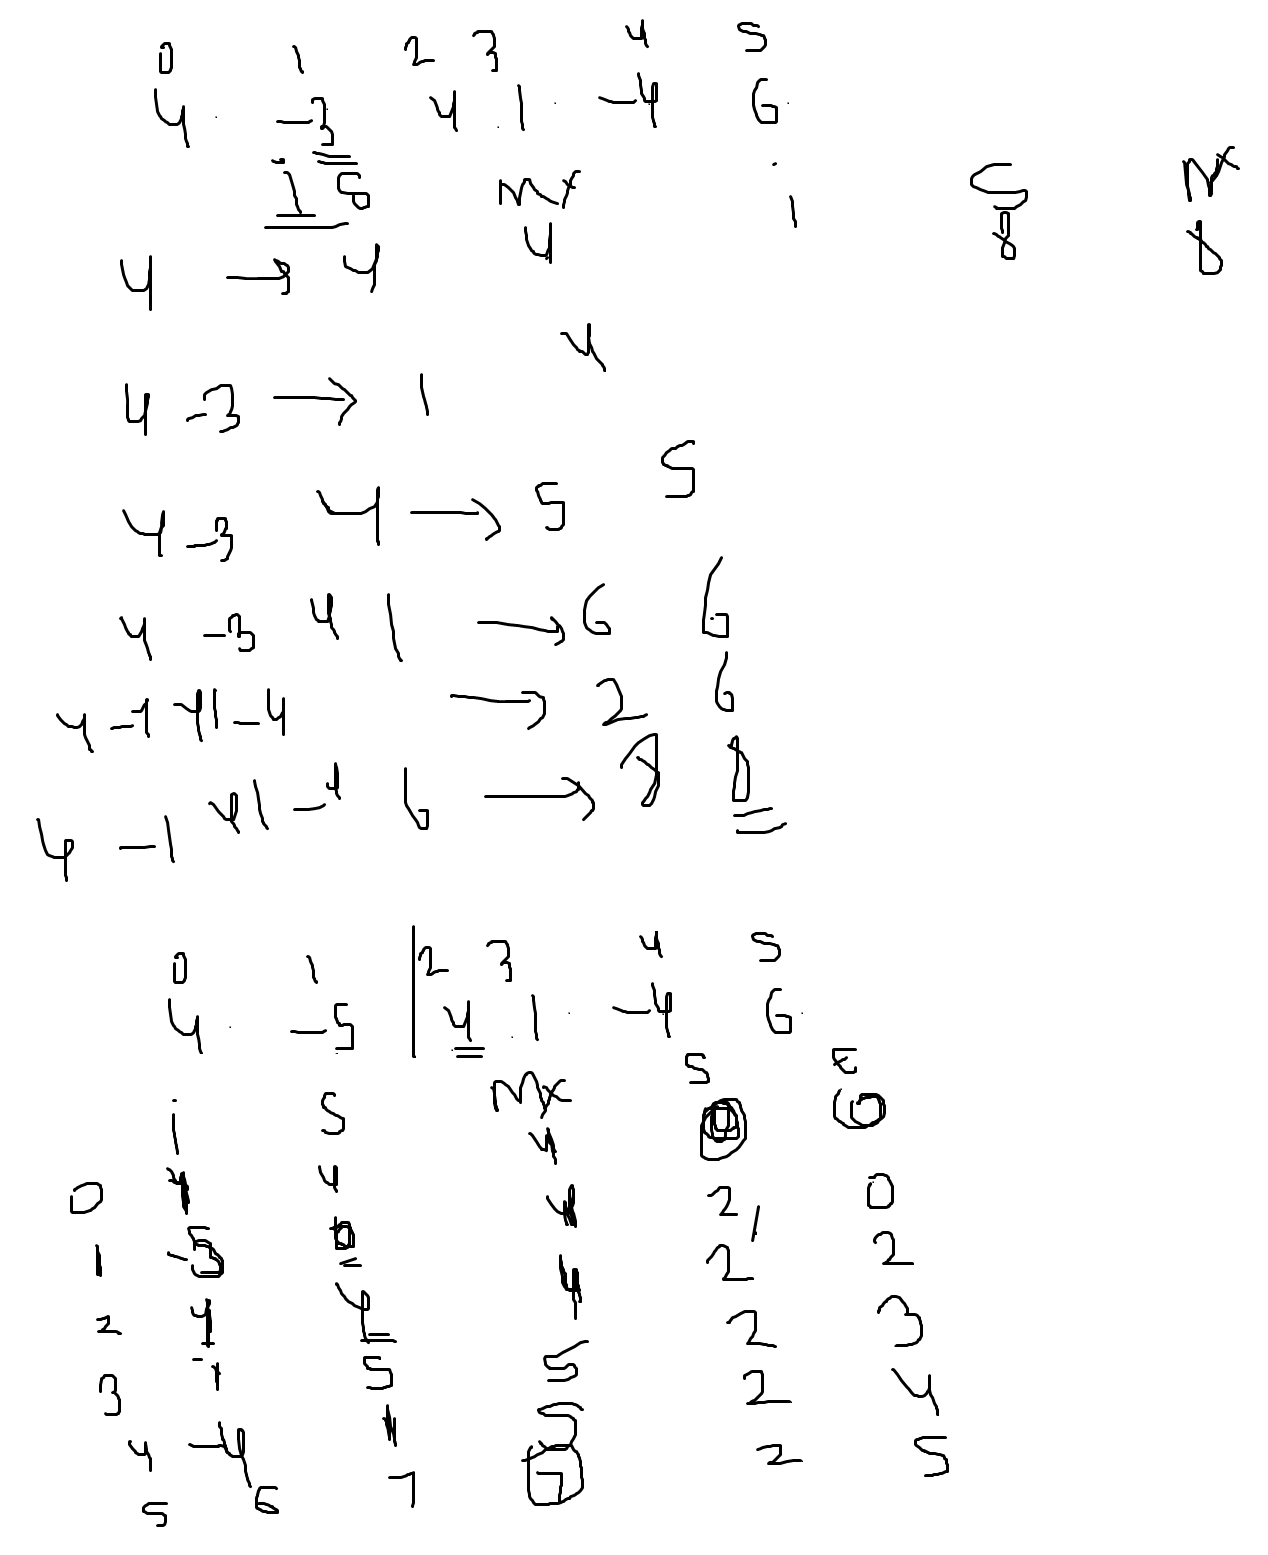 0 1 2 3 4 5
4 -3 4 1 -4 6
i S Mx i S Mx
4 → 4 4 8 8
4 -3 → 1 4
4 -3 4 → 5 5
4 -3 4 1 → 6 6
4 -1 4 1 -4 → 2 6
4 -1 4 1 -4 6 → 8 8
0 1 2 3 4 5
4 -5 4 1 -4 6
i S Mx S E
0 4 4 4 0 0
1 -5 0 4 2, 0
2 4 4 4 2 2
3 1 5 5 2 3
4 -4 1 5 2 4
5 6 7 7 2 5